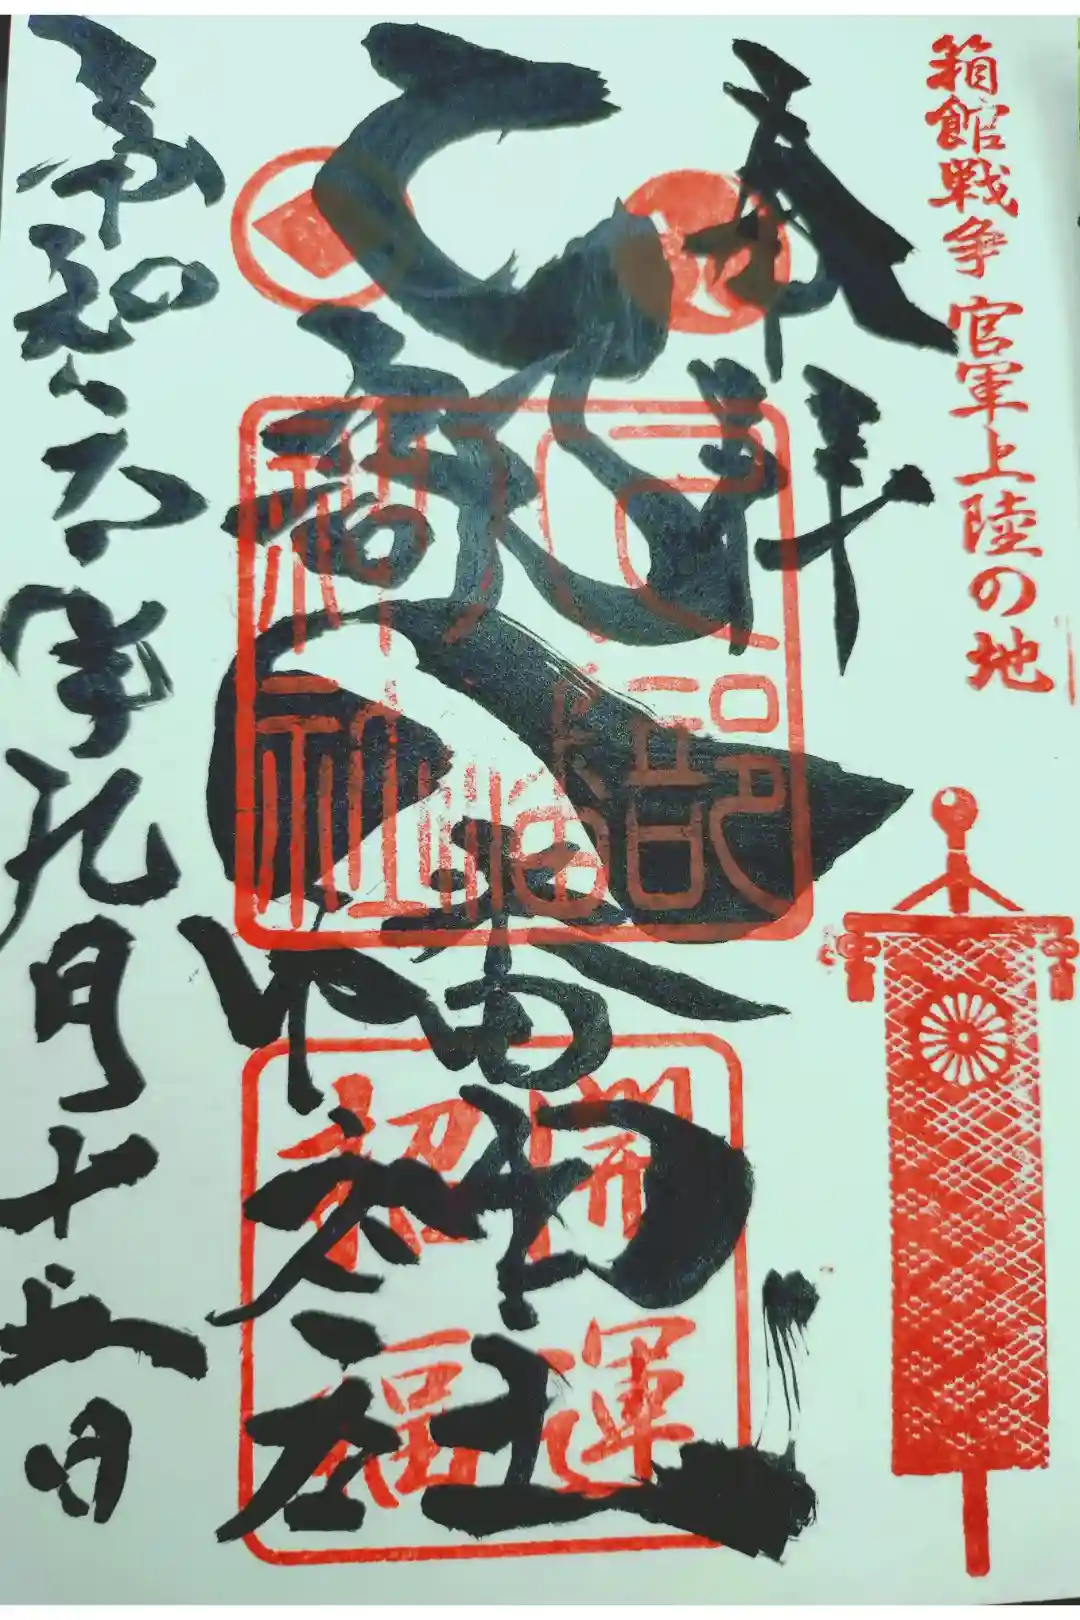 箱館戦争 官軍上陸の地
奉拝
乙部八幡神社
乙部
八幡
神社
開運
招福
令和
年九月十五日